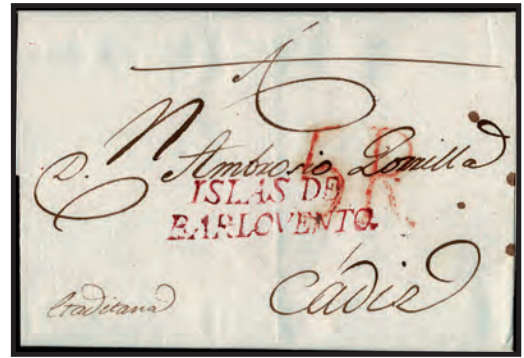 A
D. Ambrosio
5R
ISLAS DE
BARLOVENTO.
Cádiz
Gaditana